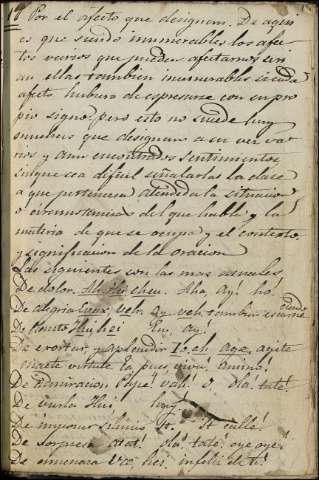 Por el afecto que designan. De aqui
es que siendo innumerables los afec-
tos varios que pueden afectarnos, ser-
an ellas tambien innumerables si cada
afecto hubiera de espresarse con su pro
pio signo: pero esto no sucede: hay
muchas que designan a su vez va-
rios y aun encontrados sentimientos,
sin que sea dificil señalarlas la clase
a que pertenecen atendida la situacion
o circunstancias del que habla y la
materia de que se ocupa y el contexto
y significacion de la oracion
Las siguientes son las mas usuales
De dolor. Ah, heu. Aha, ay! ho!
De alegria veh. Ay,
De llanto Hei Eu, ay!
De exortar y aplaudir Io, eh, age, agite
macte virtute Ea, pues, viva! animo!
De admiracion, O, Ola! tate!
De burla Hui huy!
De imponer silencio St. St calle!
De sorpresa atat! ola! tate! oye oye
De amenaza Væ, hei, infeliz de ti!